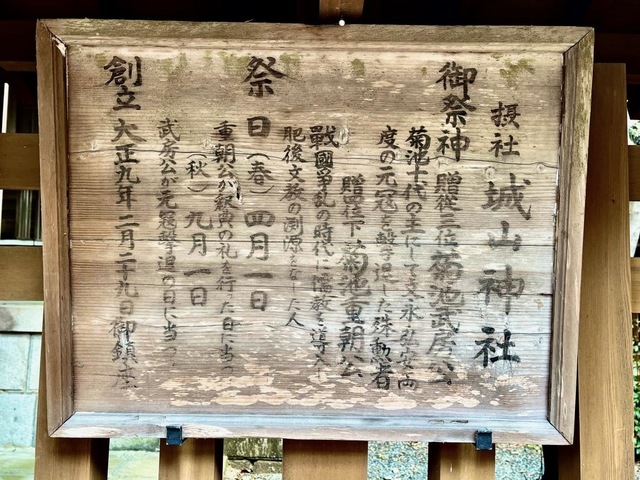 摂社 城山神社
御祭神 贈従三位 菊池武房公
菊池十代の主にして文永弘安両
度の元寇を撃退した殊勲者
贈四位下 菊池重朝公
戰國爭乱の時代に儒教を導入し
肥後文教の淵源をなした人
祭日(春)四月一日
重朝公が釈奠の礼を行った日に当つ
(秋)九月一日
武房公が元寇擊退の日に当つ
創立 大正九年二月二十九日御鎮座